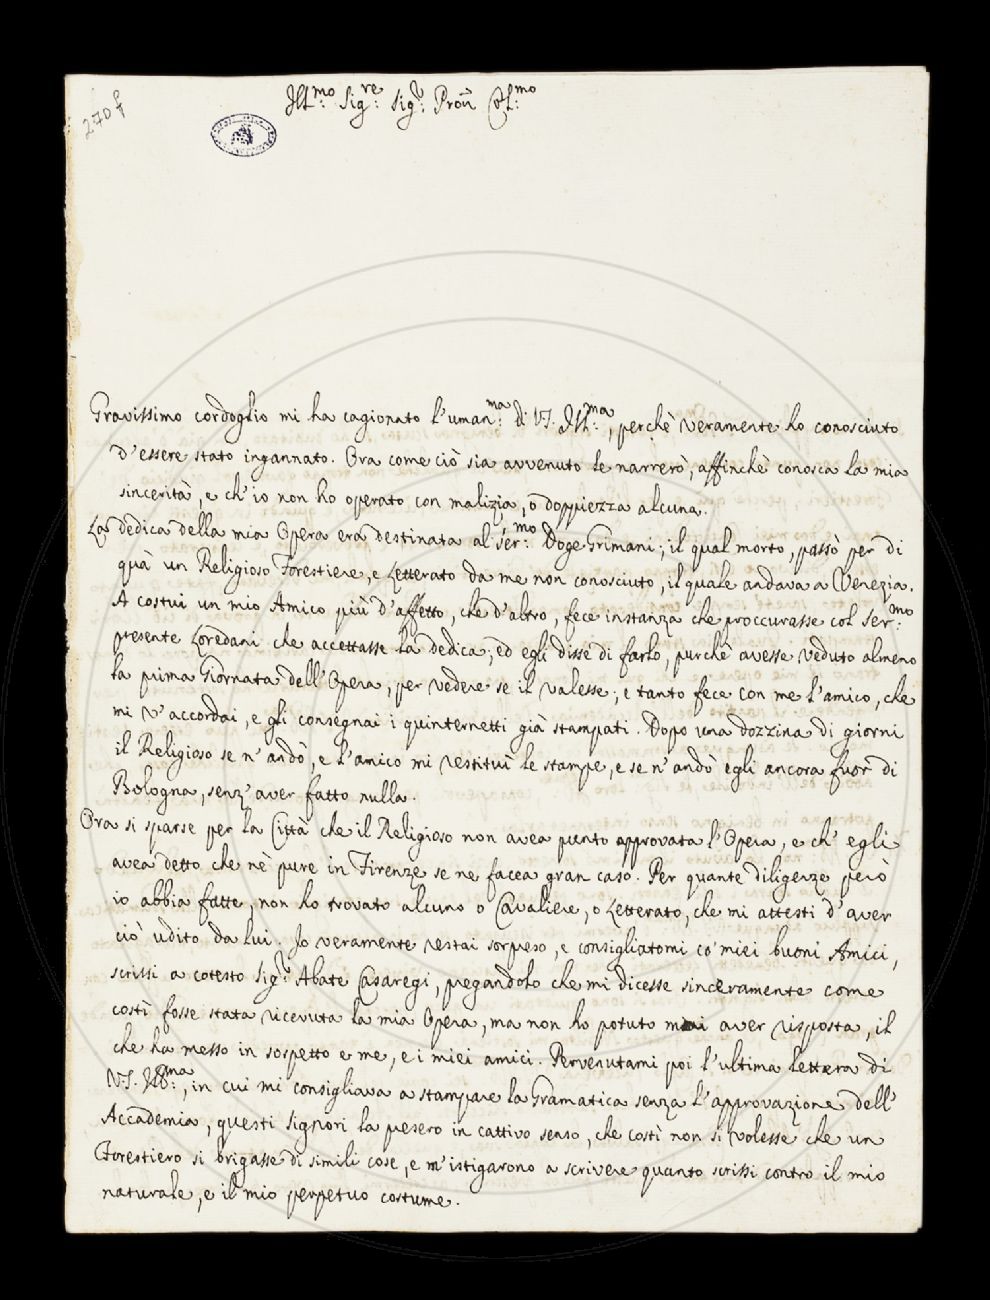 270 f
Ill.mo Sig.re Sig.r Pron Col.mo
Gravissimo cordoglio mi ha cagionato l'uman.ma di VS. Ill.ma, perchè veramente ho conosciuto
d'essere stato ingannato. Ora come ciò sia avvenuto le narrerò, affinchè conosca la mia
sincerità, e ch'io non ho operato con malizia, o doppiezza alcuna.
La dedica della mia Opera era destinata al Ser.mo Doge Grimani; il qual morto, passò per di
quà un Religioso Forestiere, e Letterato da me non conosciuto, il quale andava a Venezia.
A costui un mio Amico più d'affetto, che d'altro, fece instanza che proccurasse col Ser.mo
presente Loredani che accettasse la dedica; ed egli disse di farlo, purchè avesse veduto almeno
la prima Giornata dell'Opera, per vedere se il valesse; e tanto fece con me l'amico, che
mi v'accordai, e gli consegnai i quinternetti già stampati. Dopo una dozzina di giorni
il Religioso se n'andò, e l'amico mi restituì le stampe, e se n'andò egli ancora fuor di
Bologna, senz'aver fatto nulla.
Ora si sparse per la Città che il Religioso non avea punto approvata l'Opera, e ch'egli
avea detto che nè pure in Firenze se ne facea gran caso. Per quante diligenze però
io abbia fatte, non ho trovato alcuno o Cavaliere, o Letterato, che mi attesti d'aver
ciò udito da lui. Io veramente restai sorpreso, e consigliatomi co' miei buoni Amici,
scrissi a cotesto Sig.r Abate Casaregi, pregandolo che mi dicesse sinceramente come
costì fosse stata ricevuta la mia Opera, ma non ho potuto mai aver risposta, il
che ha messo in sospetto e me, e i miei amici. Pervenutami poi l'ultima lettera di
VS. Ill.ma, in cui mi consigliava a stampare la Gramatica senza l'approvazione dell'
Accademia, questi Signori la presero in cattivo senso, che costì non si volesse che un
Forestiero si brigasse di simili cose, e m'istigarono a scrivere quanto scrissi contro il mio
naturale, e il mio perpetuo costume.